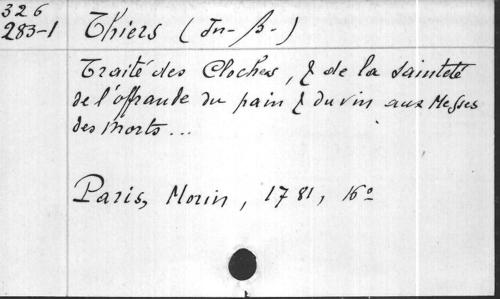 326
283-1 Thiers (Jn-B-)
Traité des Cloches, & de la sainteté
de l'offrande du pain & du vin aux Messes
des Morts...
Paris, Morin, 1781, 16º